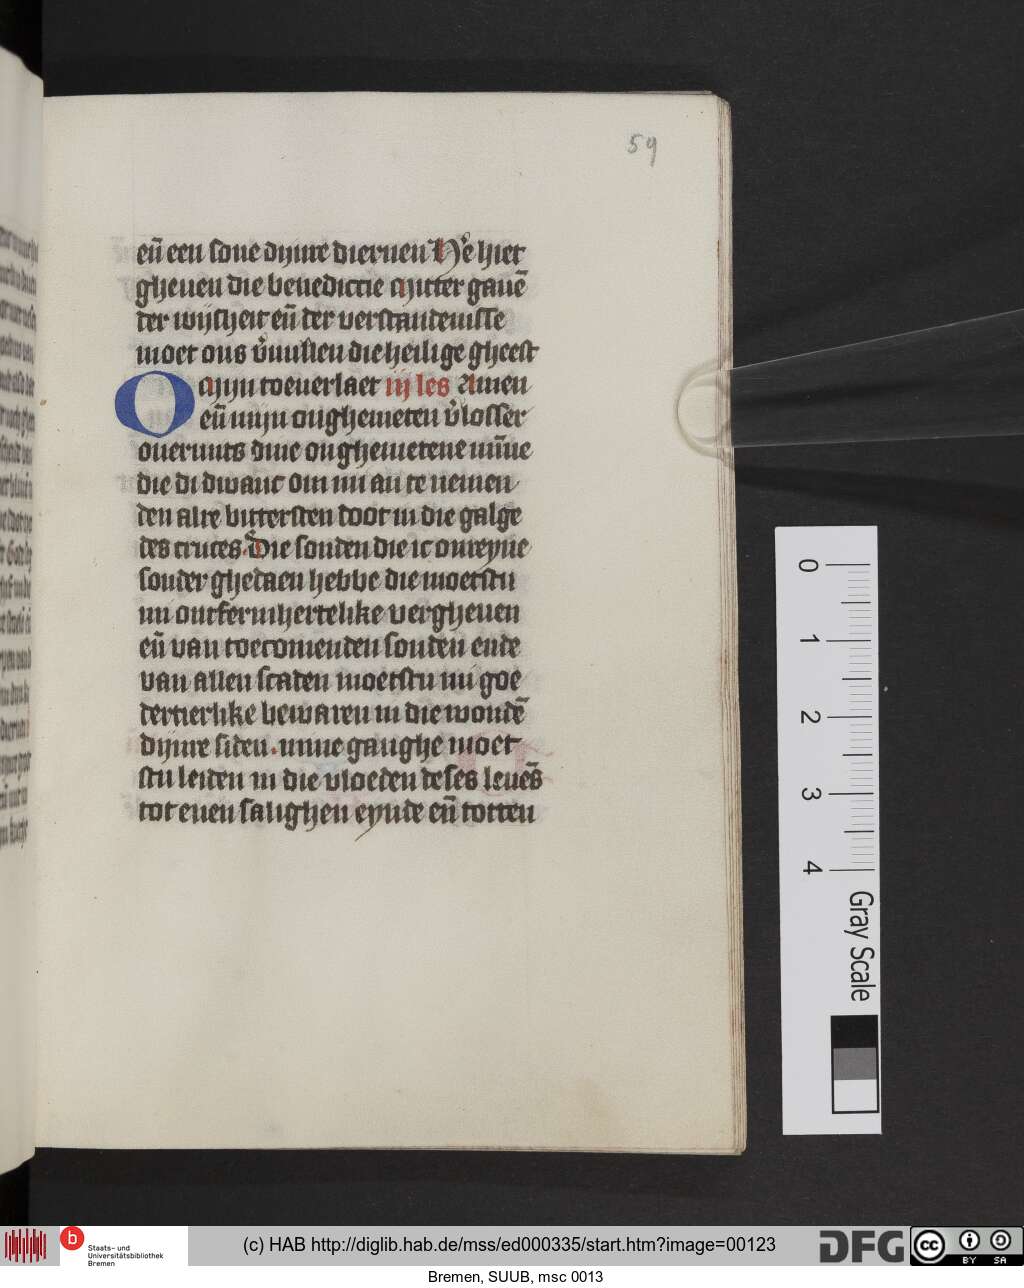 59
eñ een sone dijnre diernen Hˀe hier
gheuen die benedictie Mitter gauē
der wijsheit eñ der verstandenisse
moet ons v̓uullen die heilige gheest
O Mijn toeuerlaet iij les Amen
eñ mijn onghemeten v̓losser
ouermits dine onghemetene mīne
die di dwanc om mi an te nemen
den alre bittersten doot in die galge
des cruces. Die sonden die ic onreyne
sonder ghedaen hebbe die moetstu
mi ontfermhertelike vergheuen
eñ van toecomenden sonden ende
van allen scaden moetstu mi goe
dertierlike bewaren in die wondē
dijnre siden. mine ganghe moet
stu leiden in die vloeden deses leuēs
tot enen salighen eynde eñ totten
0
1
2
3
4
Gray Scale
b Staats- und
Universitätsbibliothek
Bremen
(c) HAB http://diglib.hab.de/mss/ed000335/start.htm?image=00123
DFG
cc BY SA
Bremen, SUUB, msc 0013